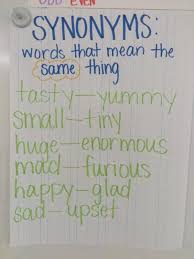 ODD EVEN
SYNONYMS:
words that mean the
same thing
tasty—yummy
small—tiny
huge—enormous
mad—furious
happy—glad
sad—upset